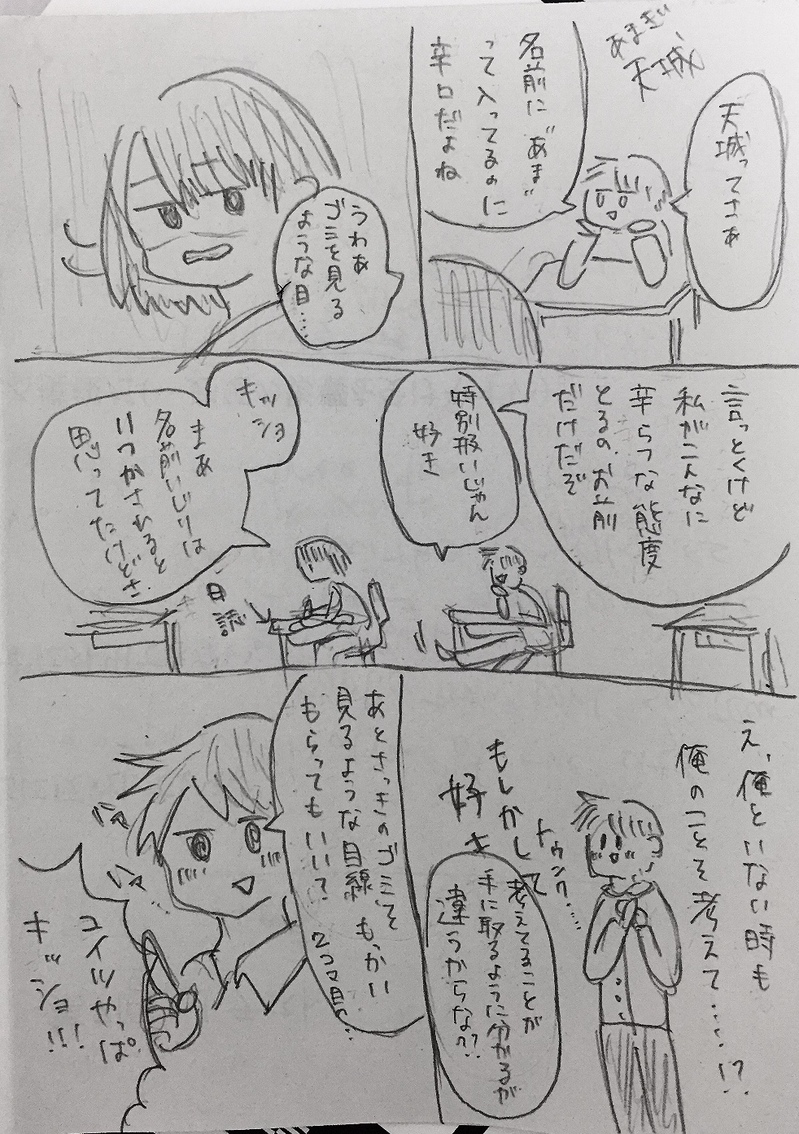 あまぎ
天城
天城ってさあ
名前に“あま”
って入ってるのに
辛口だよね
うわあ
ゴミを見る
ような目……
言っとくけど
私がこんなに
辛らつな態度
とるの、お前
だけだぞ
特別扱いじゃん
好き
キッショ
まあ
名前いじりは
いつかされると
思ってたけどさ
日誌
え、俺といない時も
俺のことを考えて……!?
もしかして
好き
トゥンク……
考えてることが
手に取るように分かるが
違うからな??
あとさっきのゴミを
見るような目線もっかい
もらってもいい?
2コマ目の…
コイツやっぱ
キッショ!!!